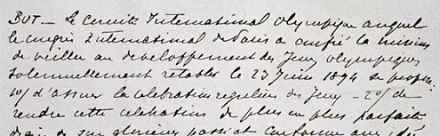 BUT — Le Comité International Olympique auquel
le Congrès International de Paris a confié la mission
de veiller au développement des Jeux Olympiques
solennellement rétablis le 23 Juin 1894 se propose
1o/ d'assurer la célébration régulière des Jeux — 2o/ de
rendre cette célébration de plus en plus parfaite
de son glorieux passé et